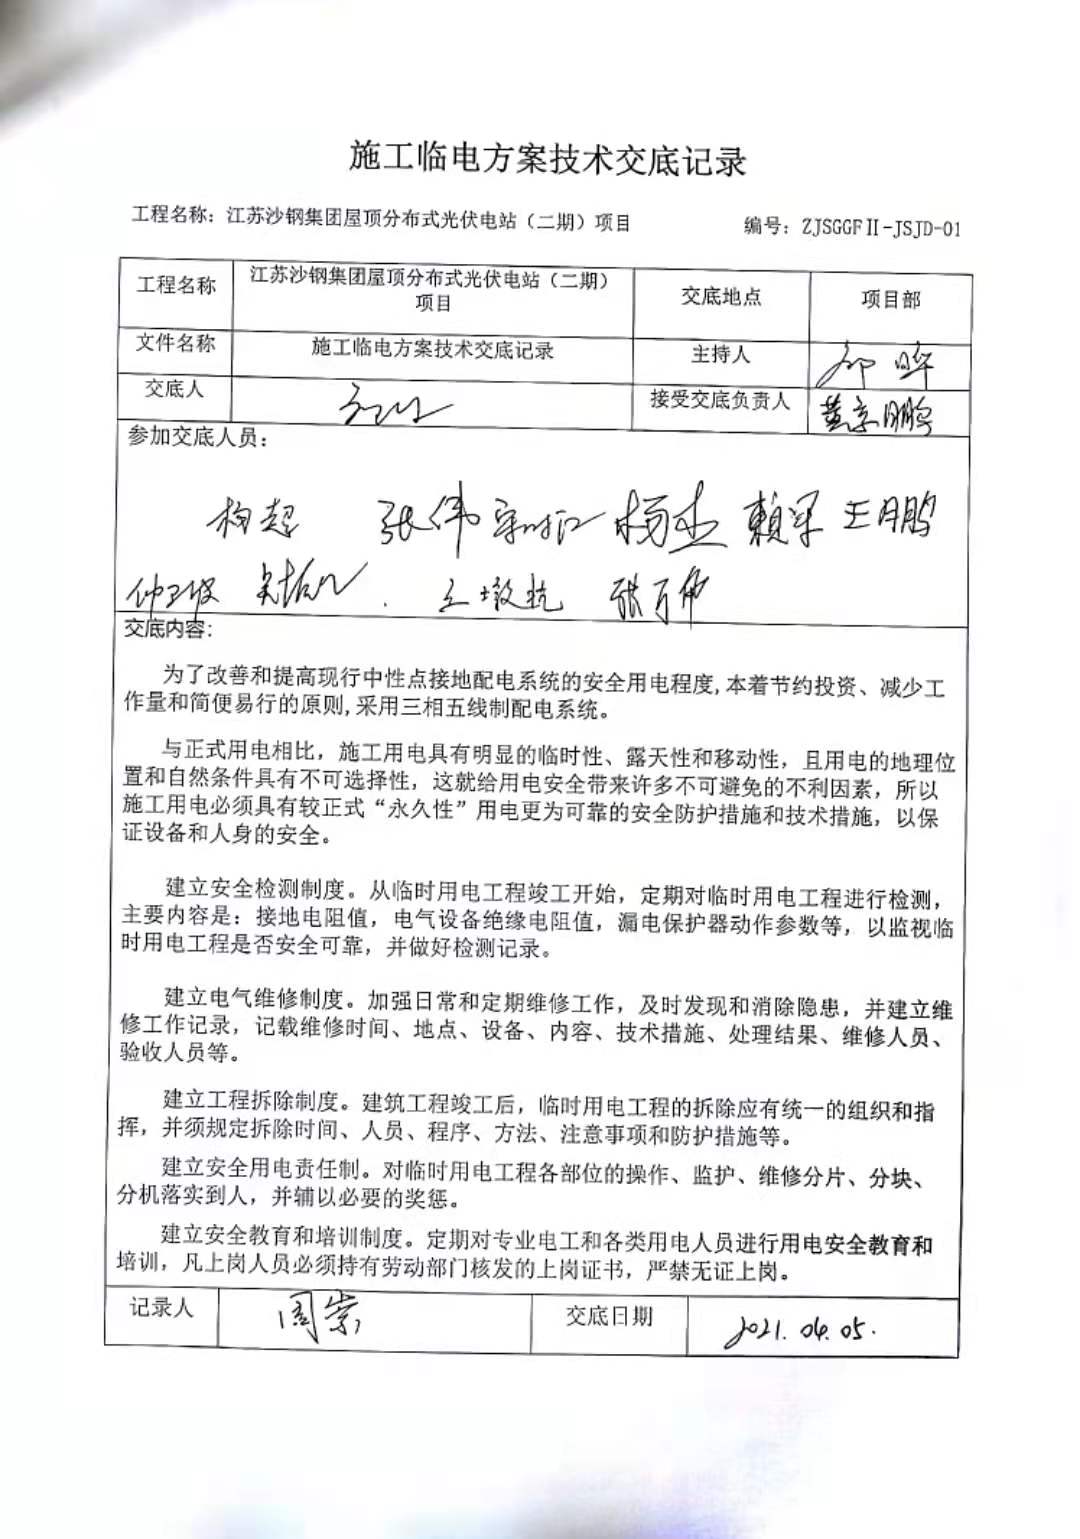 施工临电方案技术交底记录
工程名称：江苏沙钢集团屋顶分布式光伏电站（二期）项目 编号：ZJSGGFⅡ-JSJD-01
工程名称 江苏沙钢集团屋顶分布式光伏电站（二期）
项目 交底地点 项目部
文件名称 施工临电方案技术交底记录 主持人
交底人 接受交底负责人 黄京鹏
参加交底人员：
张伟 杨杰 賴军 王月鹏
张万伟
交底内容：
为了改善和提高现行中性点接地配电系统的安全用电程度,本着节约投资、减少工
作量和简便易行的原则,采用三相五线制配电系统。
与正式用电相比，施工用电具有明显的临时性、露天性和移动性，且用电的地理位
置和自然条件具有不可选择性，这就给用电安全带来许多不可避免的不利因素，所以
施工用电必须具有较正式“永久性”用电更为可靠的安全防护措施和技术措施，以保
证设备和人身的安全。
建立安全检测制度。从临时用电工程竣工开始，定期对临时用电工程进行检测，
主要内容是：接地电阻值，电气设备绝缘电阻值，漏电保护器动作参数等，以监视临
时用电工程是否安全可靠，并做好检测记录。
建立电气维修制度。加强日常和定期维修工作，及时发现和消除隐患，并建立维
修工作记录，记载维修时间、地点、设备、内容、技术措施、处理结果、维修人员、
验收人员等。
建立工程拆除制度。建筑工程竣工后，临时用电工程的拆除应有统一的组织和指
挥，并须规定拆除时间、人员、程序、方法、注意事项和防护措施等。
建立安全用电责任制。对临时用电工程各部位的操作、监护、维修分片、分块、
分机落实到人，并辅以必要的奖惩。
建立安全教育和培训制度。定期对专业电工和各类用电人员进行用电安全教育和
培训，凡上岗人员必须持有劳动部门核发的上岗证书，严禁无证上岗。
记录人 周崇 交底日期 2021.04.05.